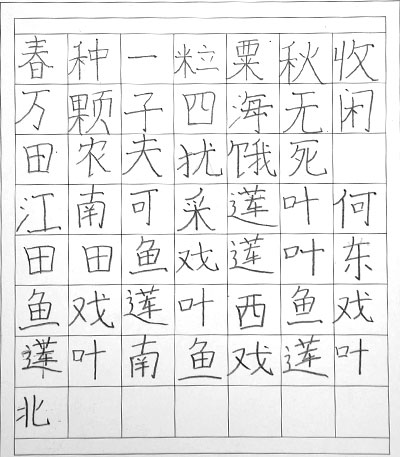 春种一粒粟秋收
万颗子四海无闲
田农夫扰饿死
江南可采莲叶何
田田鱼戏莲叶东
鱼戏莲叶西鱼戏
莲叶南鱼戏莲叶
北